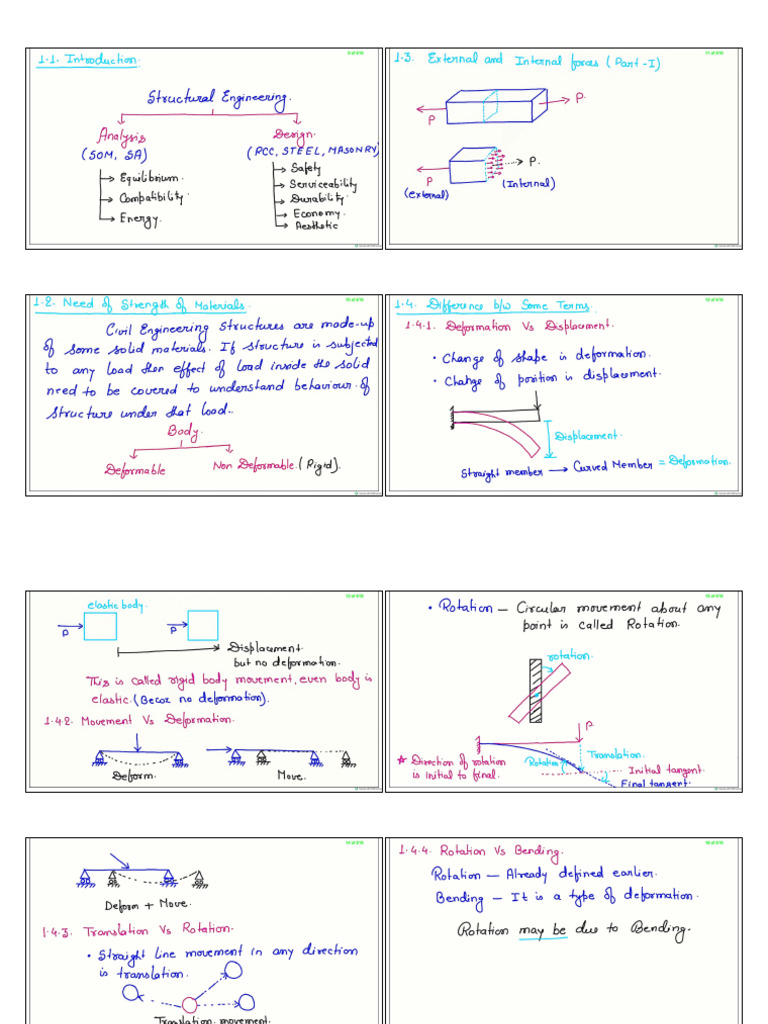 1.1. Introduction.
Structural Engineering.
Analysis
(SOM, SA)
Equilibrium.
Compatibility.
Energy.
Design.
(PCC, STEEL, MASONRY)
Safety
Serviceability
Durability
Economy.
Aesthetic
1.3. External and Internal forces (Part-I)
P
P.
P
P.
(External)
(Internal)
1.2. Need of Strength of Materials.
Civil Engineering Structures are made-up
of some solid materials. If structure is subjected
to any load then effect of load inside the solid
need to be covered to understand behaviour of
structure under that load..
Body.
Deformable
Non Deformable. (Rigid).
1.4. Difference b/w Some Terms.
1.4.1. Deformation Vs Displacement.
• Change of shape is deformation.
• Change of position is displacement.
Displacement.
Straight member → Curved Member = Deformation.
elastic body.
P
P
Displacement
but no deformation.
This is called rigid body movement, even body is
elastic. (Becoz no deformation).
1.4.2. Movement Vs Deformation.
Deform.
Move.
• Rotation — Circular movement about any
point is called Rotation.
rotation.
P
* Direction of rotation
is initial to final.
Rotation
Translation.
Initial tangent.
Final tangent.
Deform + Move.
1.4.3. Translation Vs Rotation.
• Straight line movement in any direction
is translation.
Translation movement.
1.4.4. Rotation Vs Bending.
Rotation — Already defined earlier.
Bending — It is a type of deformation.
Rotation may be due to Bending.